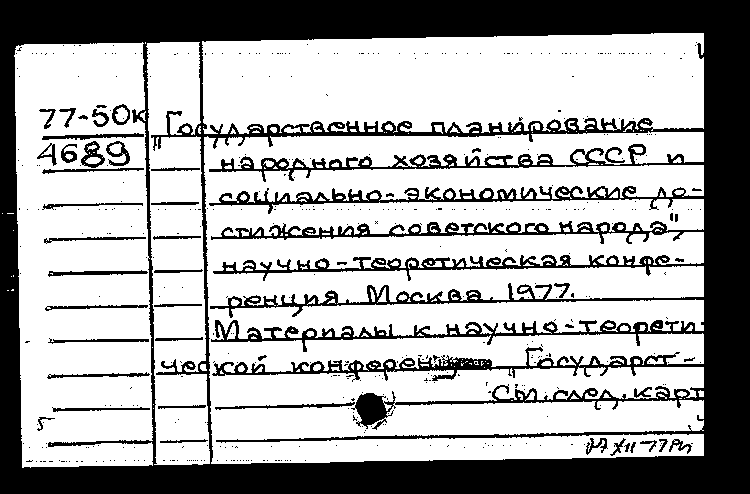 77-50к
4689
„Государственное планирование
народного хозяйства СССР и
социально-экономические до-
стижения советского народа",
научно-теоретическая конфе-
ренция. Москва. 1977.
Материалы к научно-теорети-
ческой конференции „Государст-
См. след. карт
5